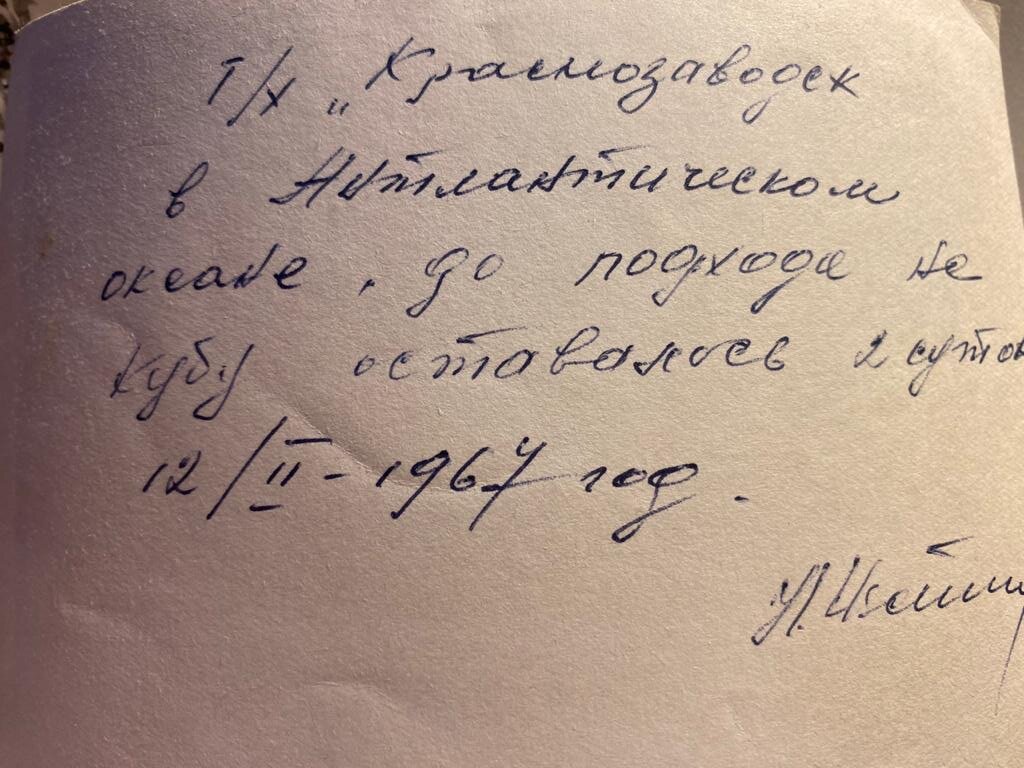 Т/х „Краснозаводск
в Атлантическом
океане, до подхода на
Кубу оставалось 2 суток
12/II - 1967 год.